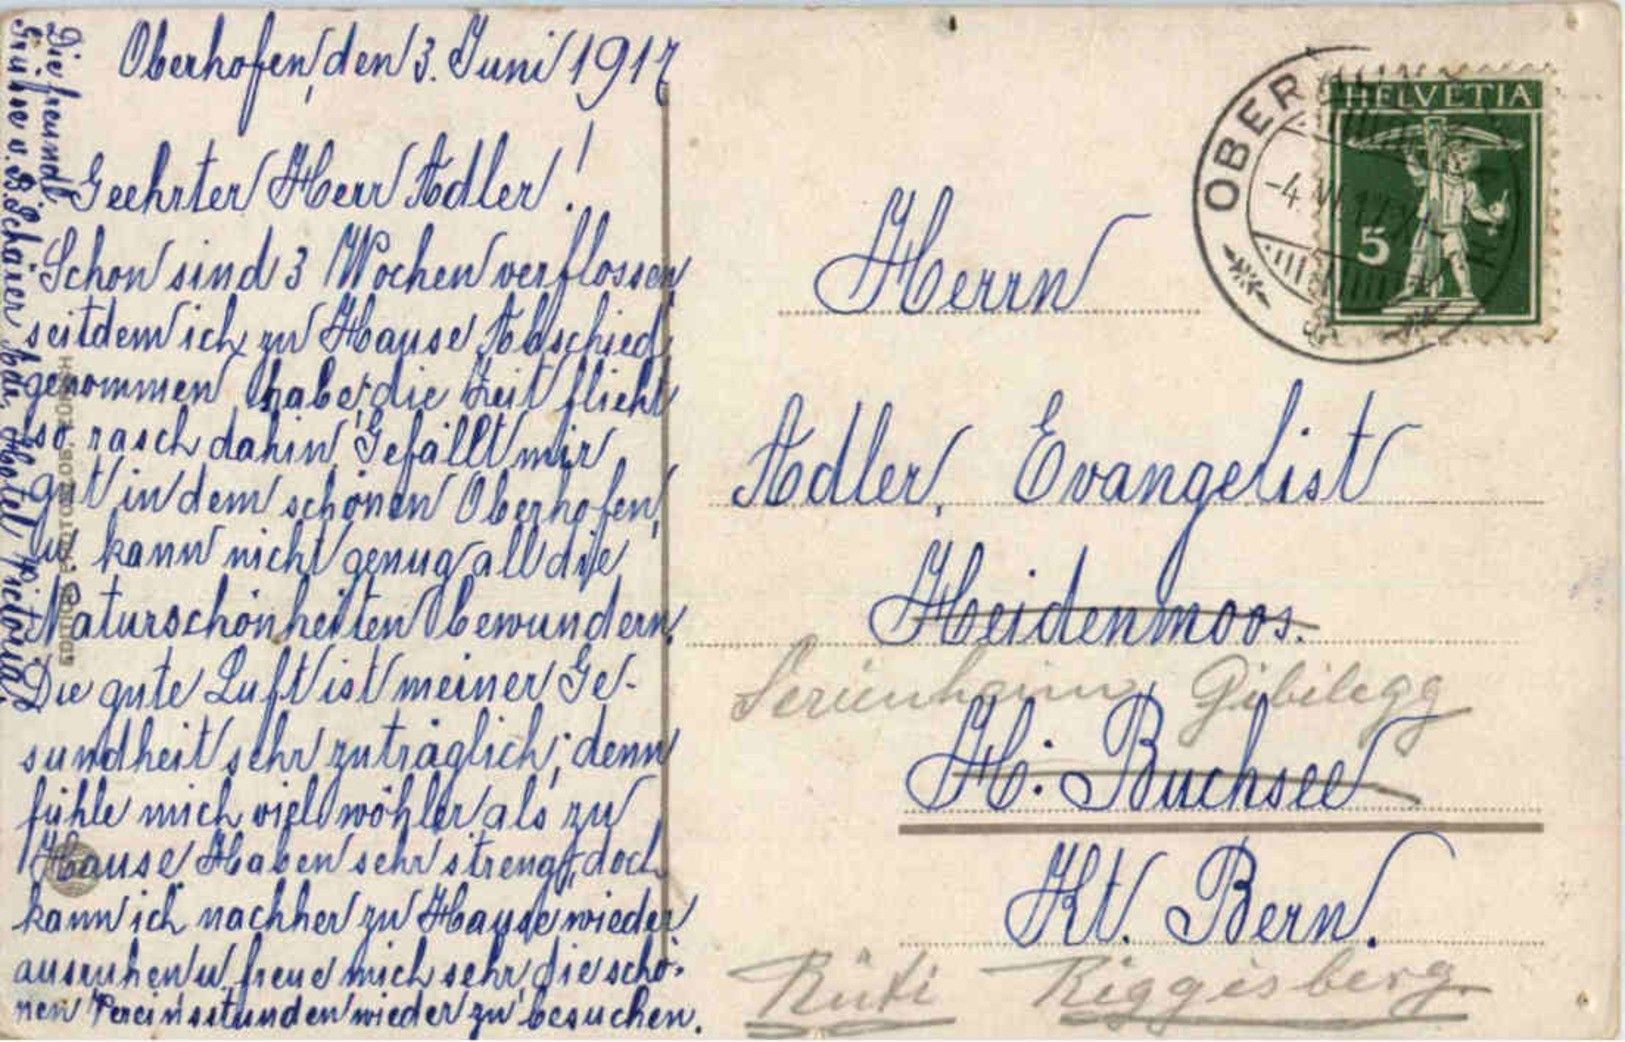 Oberhofen, den 3. Juni 1917
Geehrter Herr Adler!
Schon sind 3 Wochen verflossen,
seitdem ich zu Hause Abschied
genommen habe, die Zeit flieht
so rasch dahin. Gefällt mir
gut in dem schönen Oberhofen,
u. kann nicht genug all die
Naturschönheiten bewundern.
Die gute Luft ist meiner Ge-
sundheit sehr zuträglich, denn
fühle mich viel wöhler als zu
Hause. Haben sehr streng, doch
kann ich nachher zu Hause wieder
ausruhen u. freue mich sehr, die schö-
nen Vereinsstunden wieder zu besuchen.
Die freundl.
Grüsse v. B. Schärer Hotel Victoria
Herrn
Adler, Evangelist
Heidenmoos.
Gibilegg
Hb. Buchsee
Kt. Bern.
Rüti Riggisberg.
HELVETIA
5
OBER
-4.VI.17